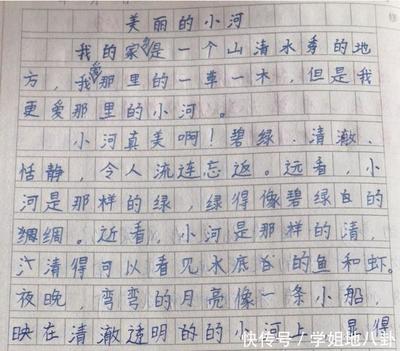 美丽的小河
我的家乡是一个山清水秀的地
方，我爱那里的一草一木，但是我
更爱那里的小河。
小河真美啊！碧绿、清澈、
恬静，令人流连忘返。远看，小
河是那样的绿，绿得像碧绿的
绸绸。近看，小河是那样的清，
清得可以看见水底的鱼和虾。
夜晚，弯弯的月亮像一条小船，
映在清澈透明的的小河上，显得
快传号／学姐地八卦